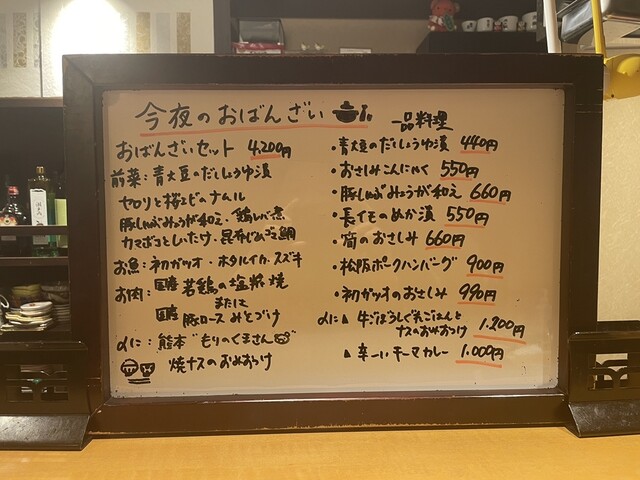 今夜のおばんざい
おばんざいセット 4,200円
前菜：青大豆のだししょうゆ漬
セロリと桜エビのナムル
豚しゃぶみょうが和え、鶏レバー煮
カマボコとしいたけ、昆布じめゴマ鯛
お魚：初ガツオ・ホタルイカ、スズキ
お肉：国産 若鶏の塩糀焼
または
国産 豚ロースみそづけ
〆に：熊本"もりのくまさん"
焼ナスのおみおつけ
一品料理
・青大豆のだししょうゆ漬 440円
・おさしみこんにゃく 550円
・豚しゃぶみょうが和え 660円
・長イモのぬか漬 550円
・筍のおさしみ 660円
・松阪ポークハンバーグ 900円
・初ガツオのおさしみ 990円
〆に▲牛ごぼうしぐれごはんと
ナスのおみおつけ 1,200円
▲辛ーいキーマカレー 1,000円